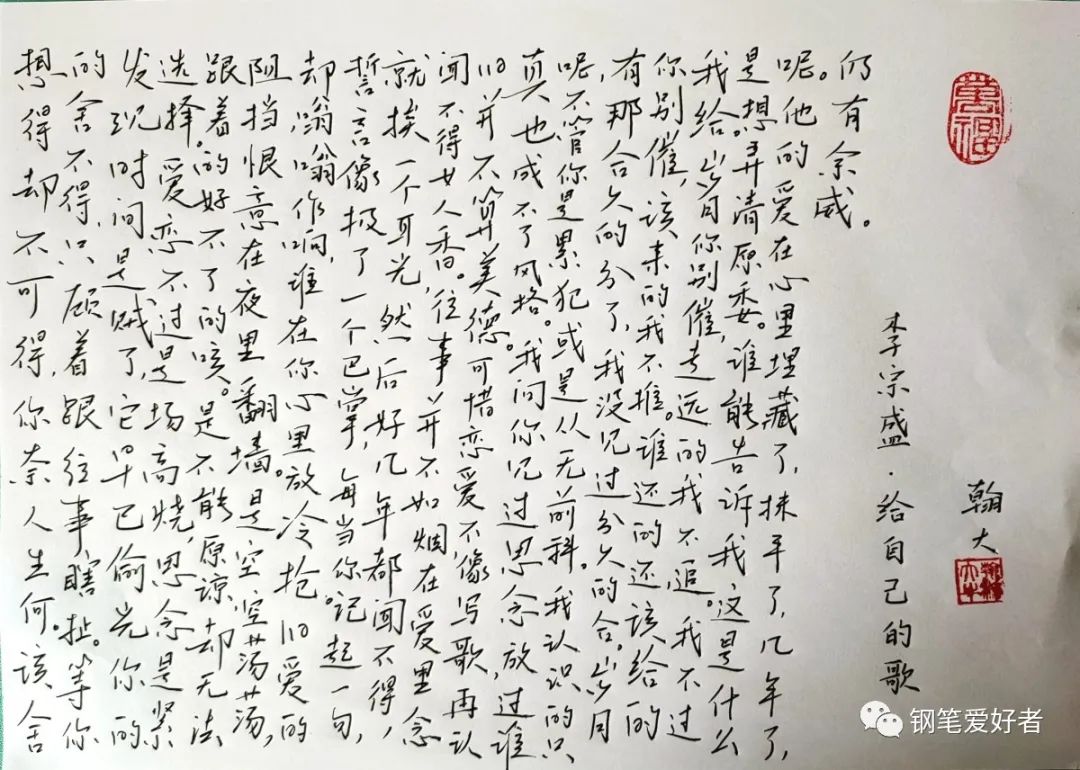 想得却不可得,你奈人生何。该舍
的舍不得,只顾着跟往事瞎扯。等你
发现时间是贼了,它早已偷光你的
选择。爱恋不过是场高烧,思念是紧
跟着的好不了的咳。是不能原谅,却无法
阻挡恨意在夜里翻墙。是空空荡荡,
却嗡嗡作响,谁在你心里放冷枪。旧爱的
誓言像极了一个巴掌,每当你记起一句,
就挨一个耳光,然后好几年都闻不得,
闻不得女人香。往事并不如烟在爱里念
旧并不算美德。可惜恋爱不像写歌,再认
真也成不了风格。我问你见过思念放过谁
呢,不管你是累犯或是从无前科。我认识的只
有那合久的分了,我没见过分久的合。岁月
你别催,该来的我不推。该还的还该给的
我给。岁月你别催,走远的我不追。我不过
是想弄清原委。谁能告诉我这是什么
呢。他的爱在心里埋藏了,抹平了,几年了,
仍有余威。
李宗盛·给自己的歌
翰大
萬福
钢笔爱好者